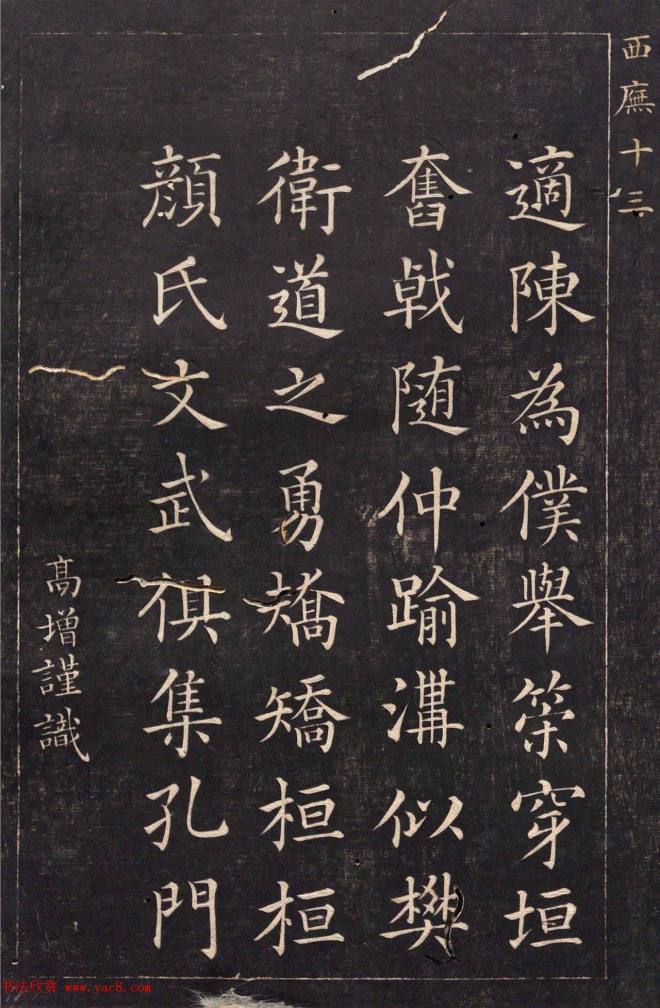 西廡十三
適陳為僕舉策穿垣
奮戟随仲踰溝似樊
衛道之勇矯矯桓桓
顏氏文武俱集孔門
高增謹識
书法欣赏 www.yac8.com